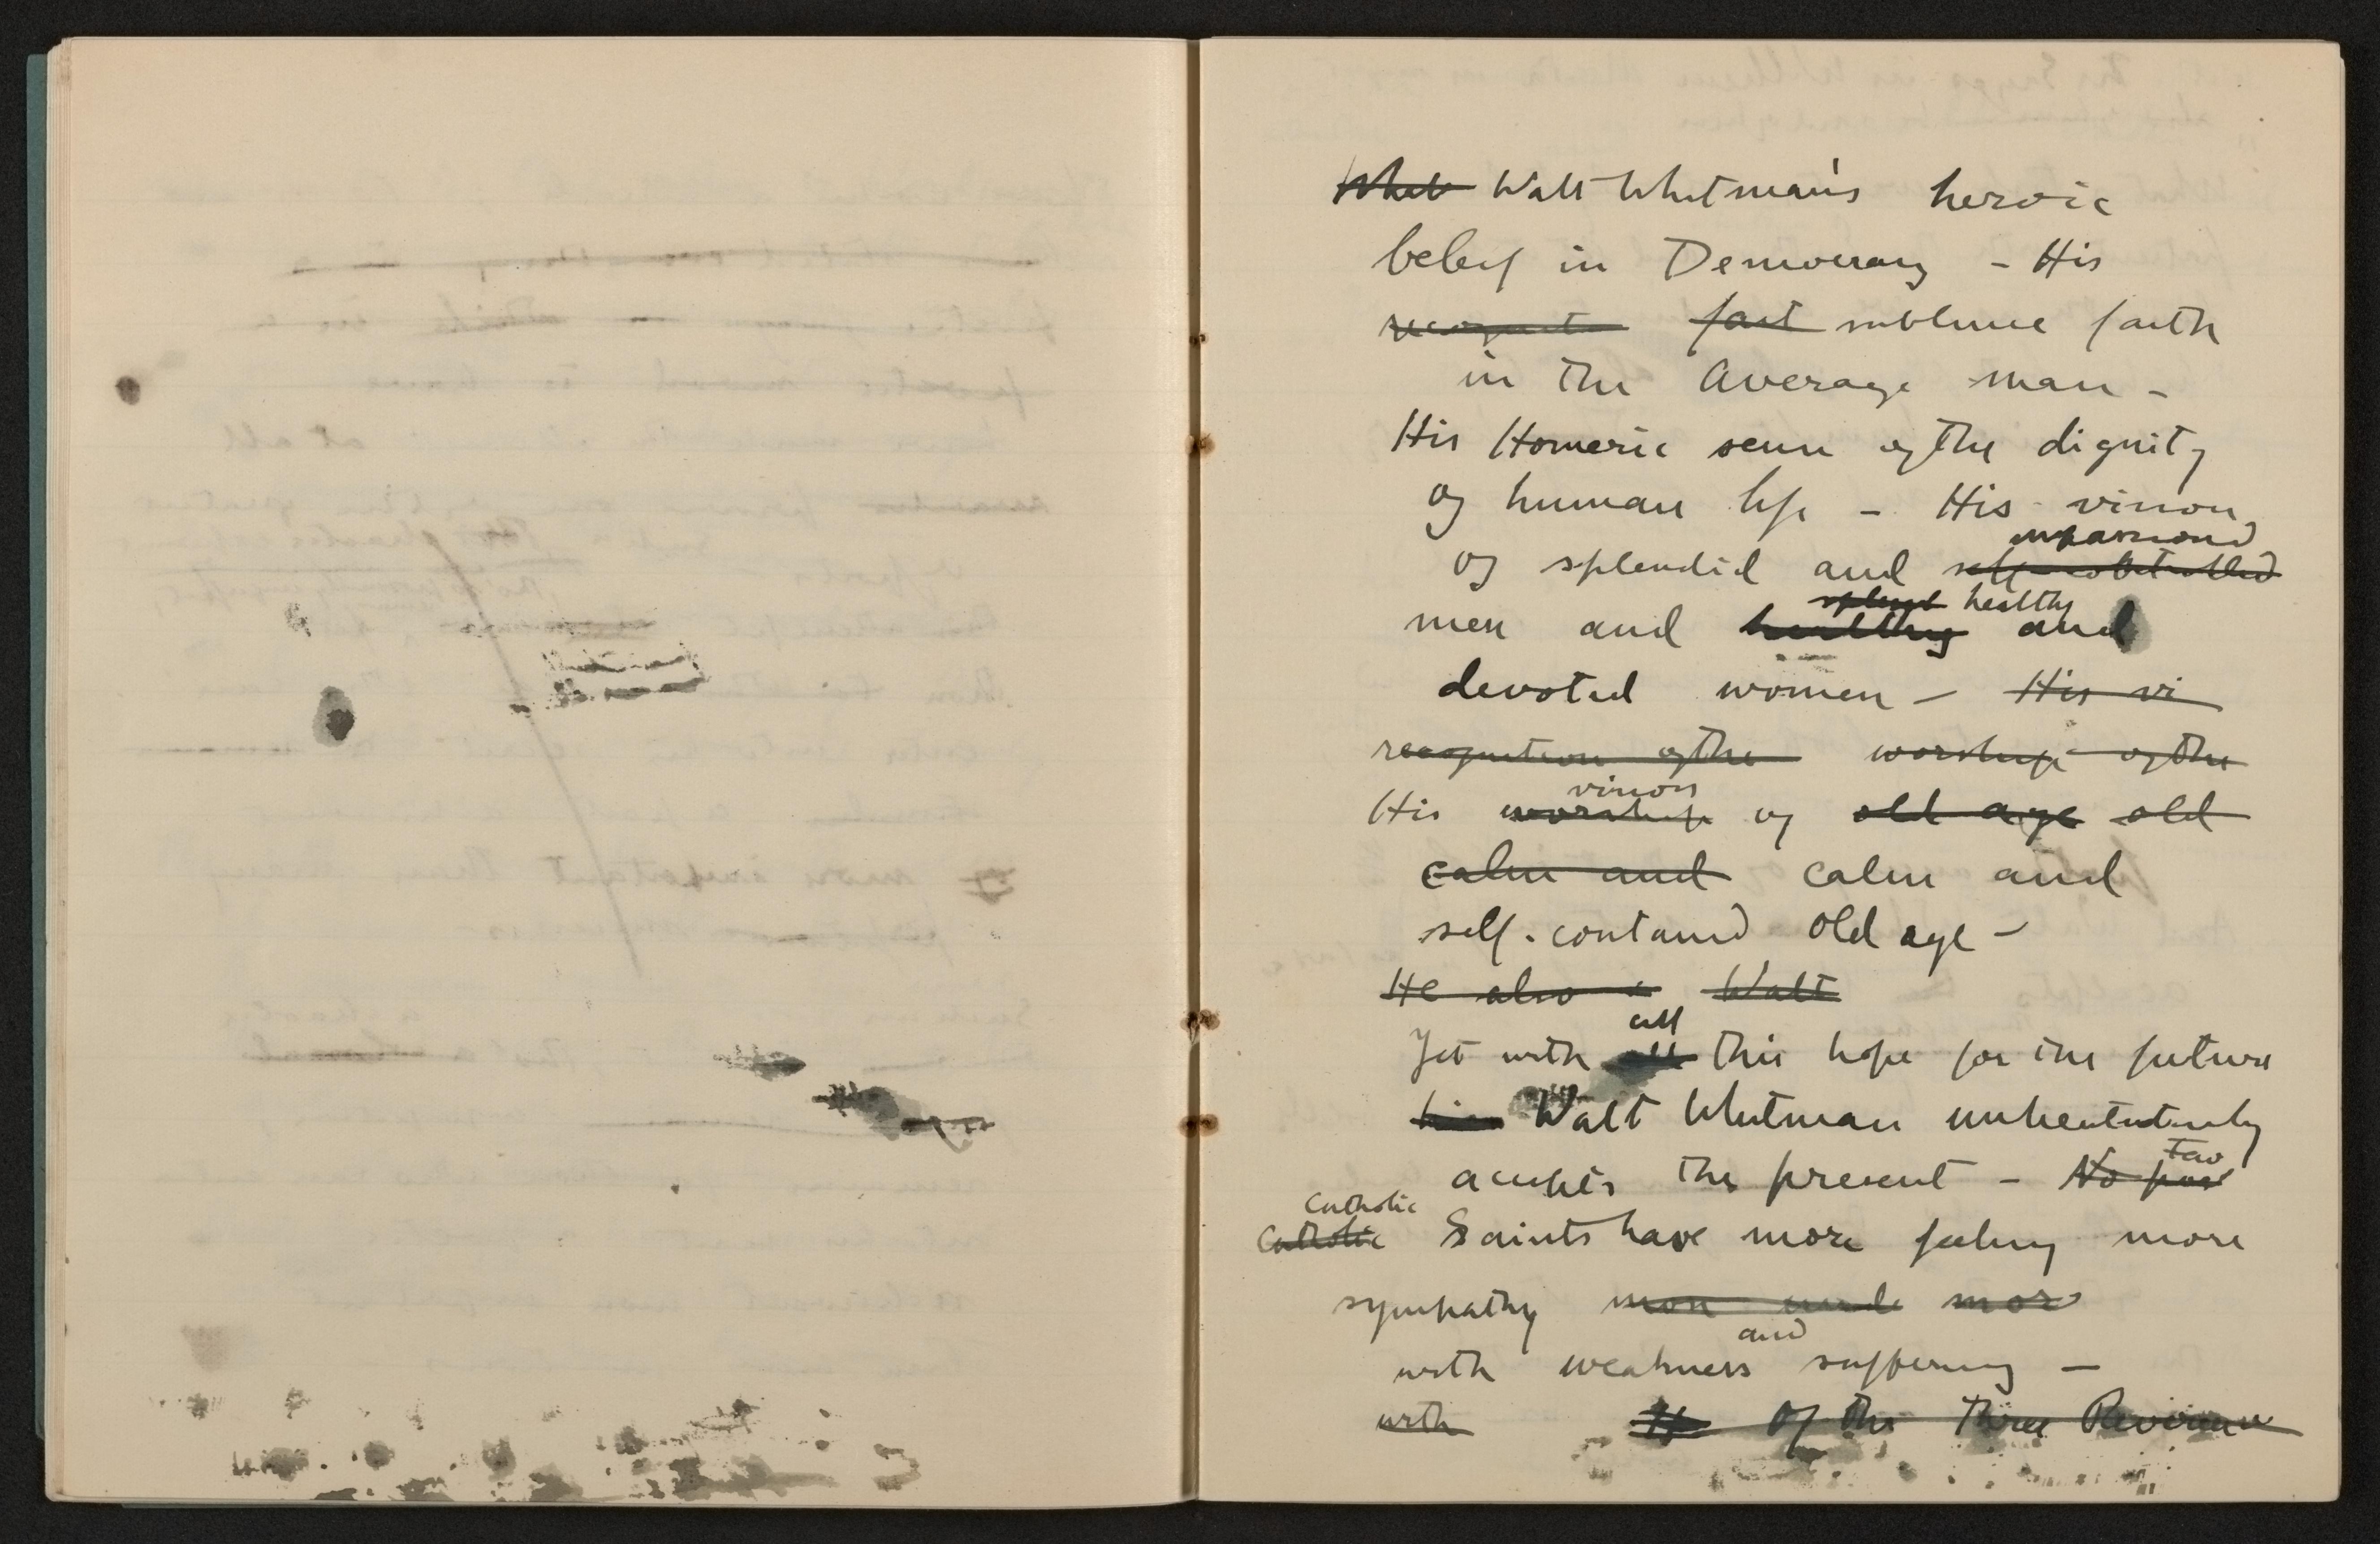 What Walt Whitman's heroic
belief in Democracy - His
recognit fait sublime faith
in the Average man -
His Homeric sense of the dignity
of human life - His vision
impassioned
of splendid and self-controlled
splend healthy
men and healthy and
devoted women - His vi
recognition of the worship of the
vision
His worship of old age old
calm and calm and
self-contained old age -
He also Walt
all
Yet with all this hope for the future
his Walt Whitman unhesitatingly
accepts the present - No
Catholic
Catholic Saints have more feeling more
sympathy more mor
and
with weakness suffering -
with If Of the Three Reverence